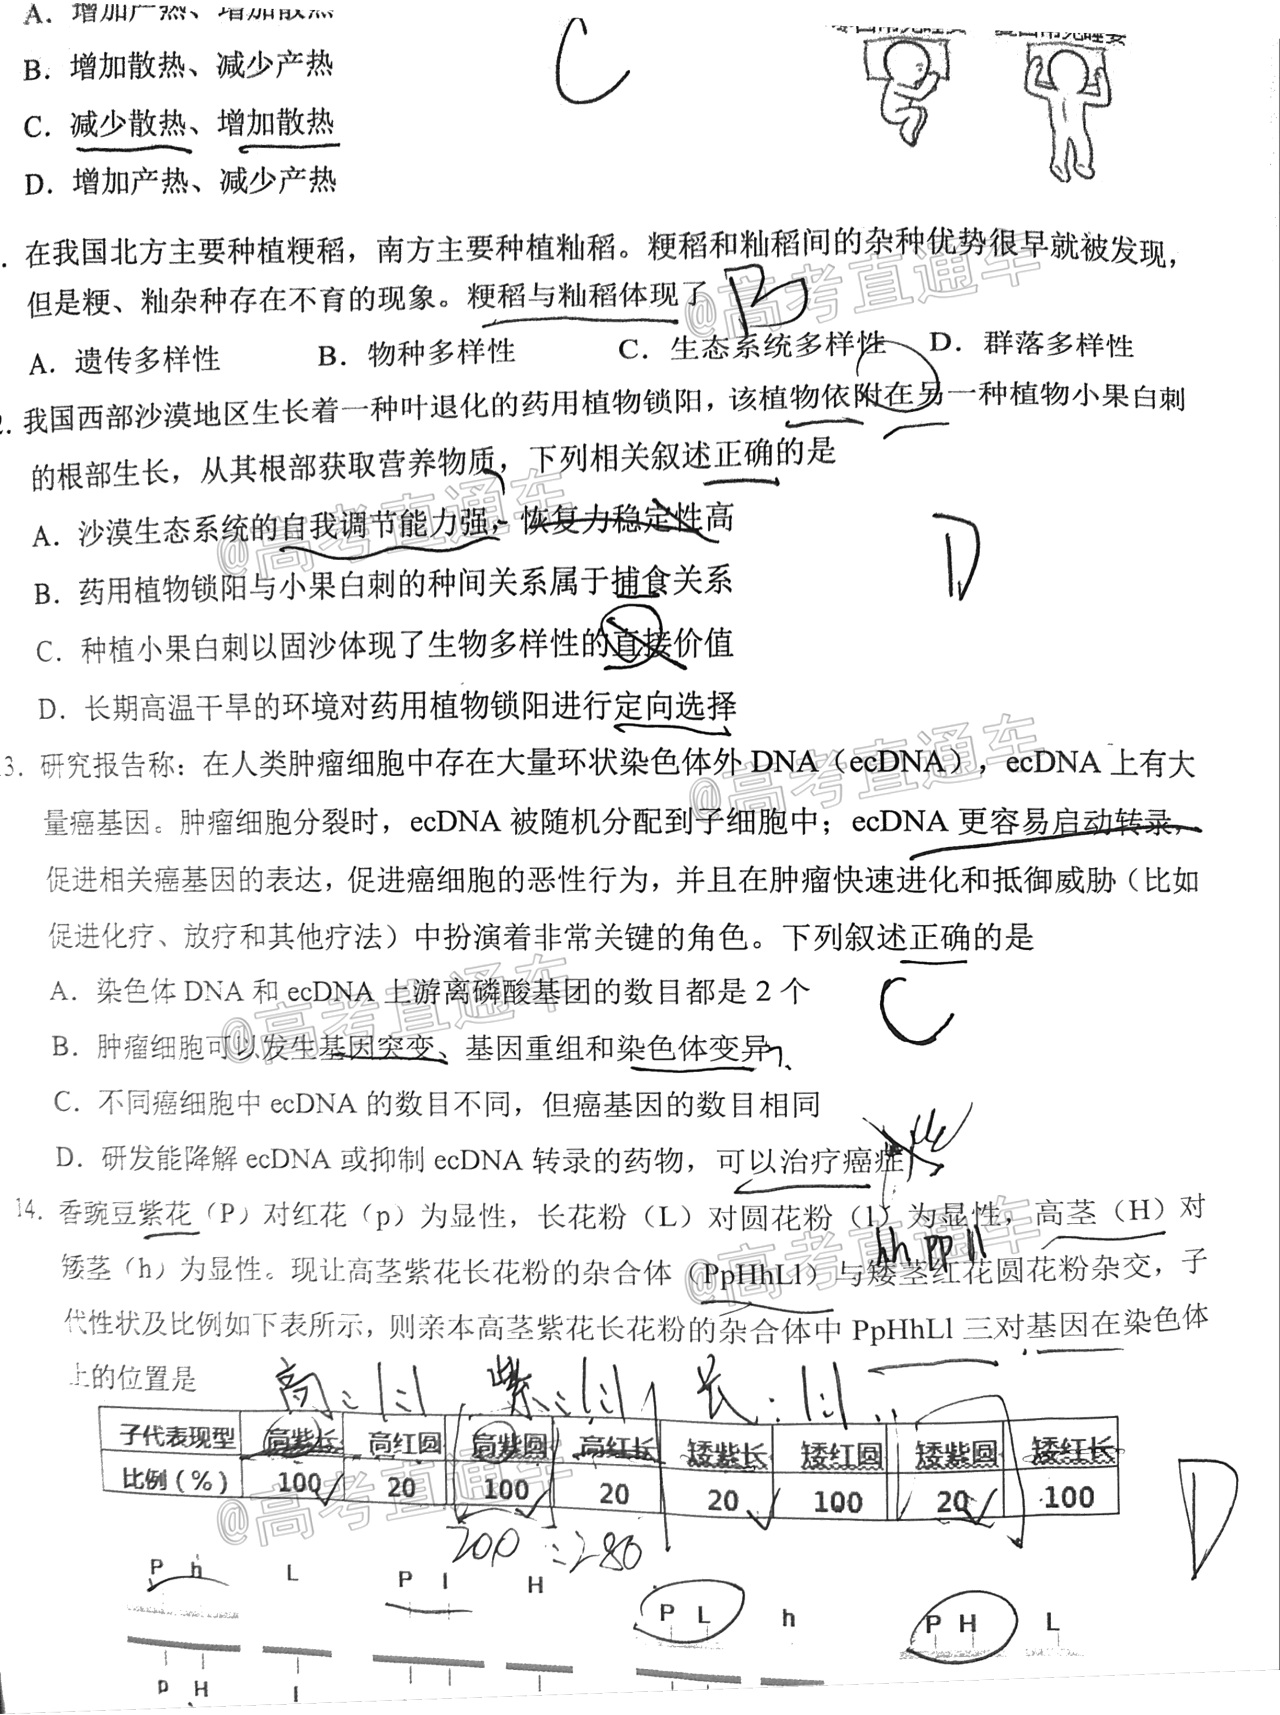 A．增加产热、增加散热
B．增加散热、减少产热
C
C．减少散热、增加散热
D．增加产热、减少产热
．在我国北方主要种植粳稻，南方主要种植籼稻。粳稻和籼稻间的杂种优势很早就被发现，
但是粳、籼杂种存在不育的现象。粳稻与籼稻体现了
B
A．遗传多样性 B．物种多样性 C．生态系统多样性 D．群落多样性
2．我国西部沙漠地区生长着一种叶退化的药用植物锁阳，该植物依附在另一种植物小果白刺
的根部生长，从其根部获取营养物质，下列相关叙述正确的是
A．沙漠生态系统的自我调节能力强，恢复力稳定性高
D
B．药用植物锁阳与小果白刺的种间关系属于捕食关系
C．种植小果白刺以固沙体现了生物多样性的直接价值
D．长期高温干旱的环境对药用植物锁阳进行定向选择
13．研究报告称：在人类肿瘤细胞中存在大量环状染色体外 DNA（ecDNA），ecDNA 上有大
量癌基因。肿瘤细胞分裂时，ecDNA 被随机分配到子细胞中；ecDNA 更容易启动转录，
促进相关癌基因的表达，促进癌细胞的恶性行为，并且在肿瘤快速进化和抵御威胁（比如
促进化疗、放疗和其他疗法）中扮演着非常关键的角色。下列叙述正确的是
A．染色体 DNA 和 ecDNA 上游离磷酸基团的数目都是 2 个
C
B．肿瘤细胞可以发生基因突变、基因重组和染色体变异
C．不同癌细胞中 ecDNA 的数目不同，但癌基因的数目相同
D．研发能降解 ecDNA 或抑制 ecDNA 转录的药物，可以治疗癌症
14．香豌豆紫花（P）对红花（p）为显性，长花粉（L）对圆花粉（l）为显性，高茎（H）对
hh pp ll
矮茎（h）为显性。现让高茎紫花长花粉的杂合体（PpHhLl）与矮茎红花圆花粉杂交，子
代性状及比例如下表所示，则亲本高茎紫花长花粉的杂合体中 PpHhLl 三对基因在染色体
上的位置是
高：1:1 紫：1:1 长：1:1
子代表现型 高紫长 高红圆 高紫圆 高红长 矮紫长 矮红圆 矮紫圆 矮红长
比例（%） 100 20 100 20 20 100 20 100
D
200 : 280
P h L P l H P L h P H L
p H l
@高考直通车
@高考直通车
@高考直通车
@高考直通车
@高考直通车
@高考直通车